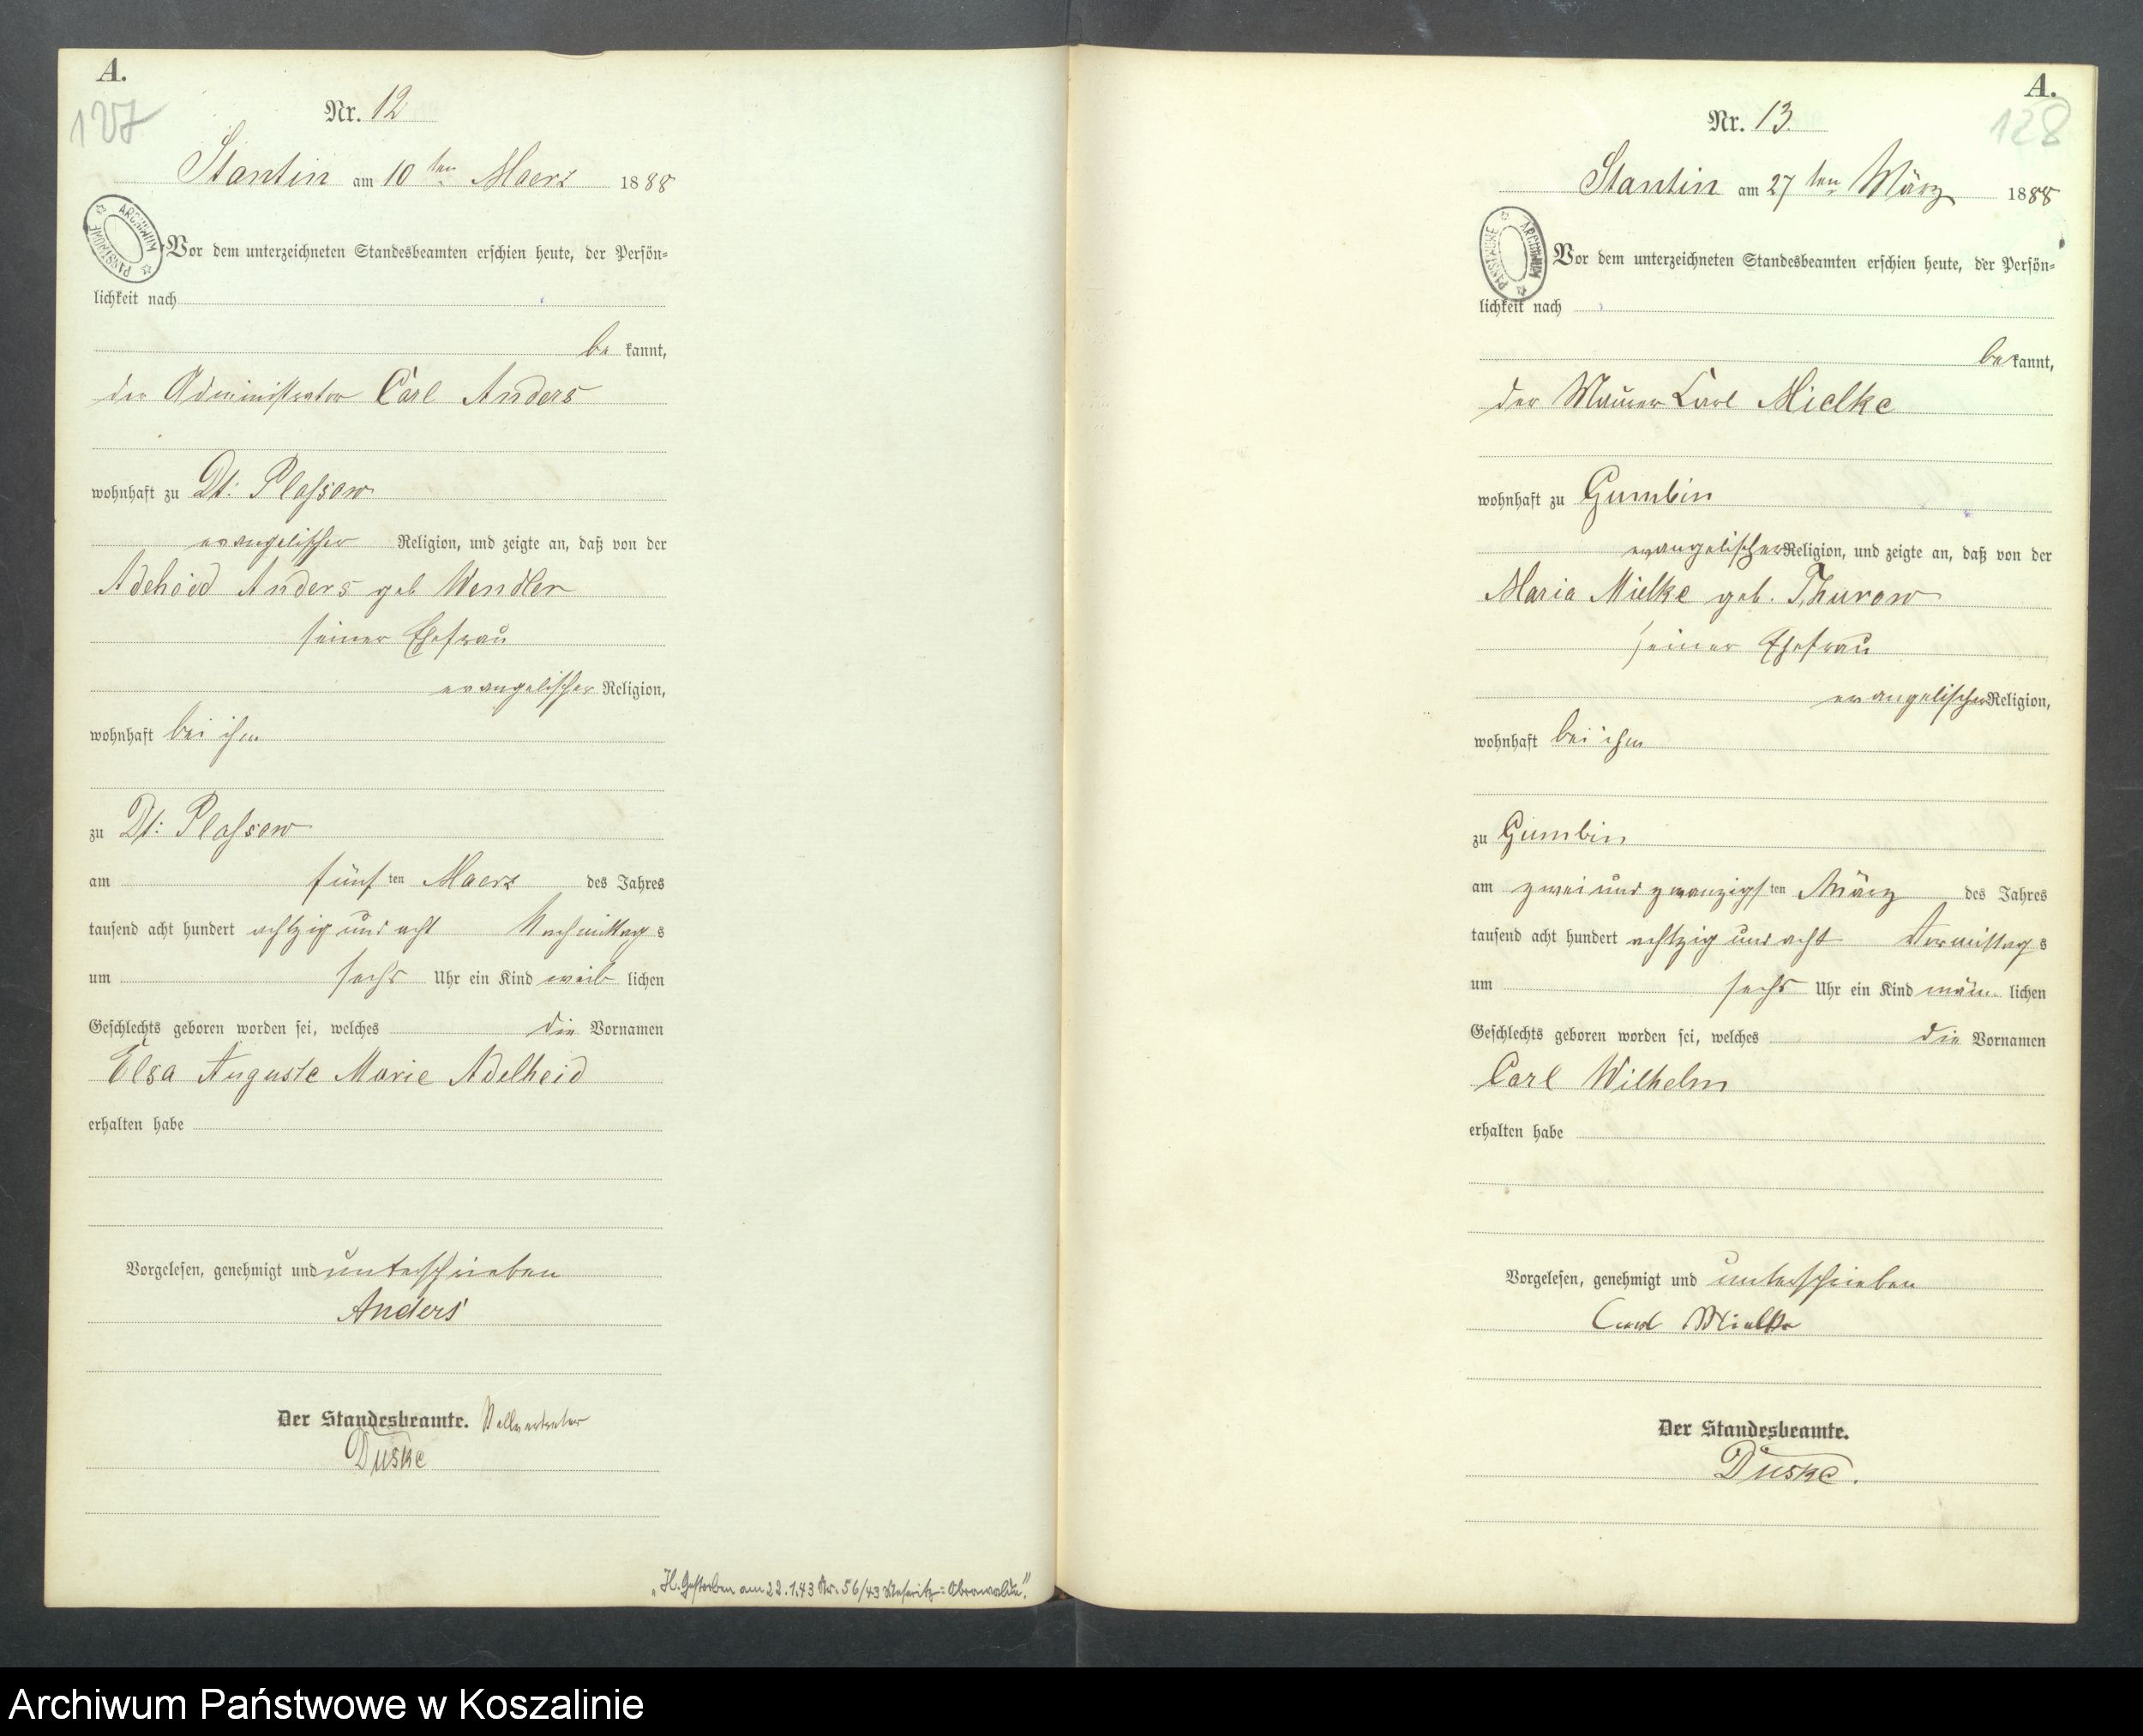 A.
127
Nr. 12
Stantin am 10 ten Maerz 1888
ARCHIWUM PAŃSTWOWE
Vor dem unterzeichneten Standesbeamten erschien heute, der Persön=
lichkeit nach
be kannt,
der Administrator Carl Anders
wohnhaft zu Dt: Plassow
evangelischer Religion, und zeigte an, daß von der
Adeheid Anders geb Wendler
seiner Ehefrau
evangelischer Religion,
wohnhaft bei ihm
zu Dt: Plassow
am fünf ten Maerz des Jahres
tausend acht hundert achtzig und acht Nachmittag s
um sechs Uhr ein Kind weib lichen
Geschlechts geboren worden sei, welches die Vornamen
Elsa Auguste Marie Adelheid
erhalten habe
Vorgelesen, genehmigt und unterschrieben
Anders
Der Standesbeamte.
Duske
„H. Gestorben am 22.1.43 Nr. 56/43 Meseritz=Obrawalde."
A.
128
Nr. 13.
Stantin am 27 ten März 1888
ARCHIWUM PAŃSTWOWE
Vor dem unterzeichneten Standesbeamten erschien heute, der Persön=
lichkeit nach
be kannt,
der Maurer Carl Mielke
wohnhaft zu Gumbin
evangelischer Religion, und zeigte an, daß von der
Maria Mielke geb. Thurow
seiner Ehefrau
evangelischer Religion,
wohnhaft bei ihm
zu Gumbin
am zwei und zwanzigs ten März des Jahres
tausend acht hundert achtzig und acht Vormittag s
um sechs Uhr ein Kind männ lichen
Geschlechts geboren worden sei, welches die Vornamen
Carl Wilhelm
erhalten habe
Vorgelesen, genehmigt und unterschrieben
Carl Mielke
Der Standesbeamte.
Duske.
Archiwum Państwowe w Koszalinie